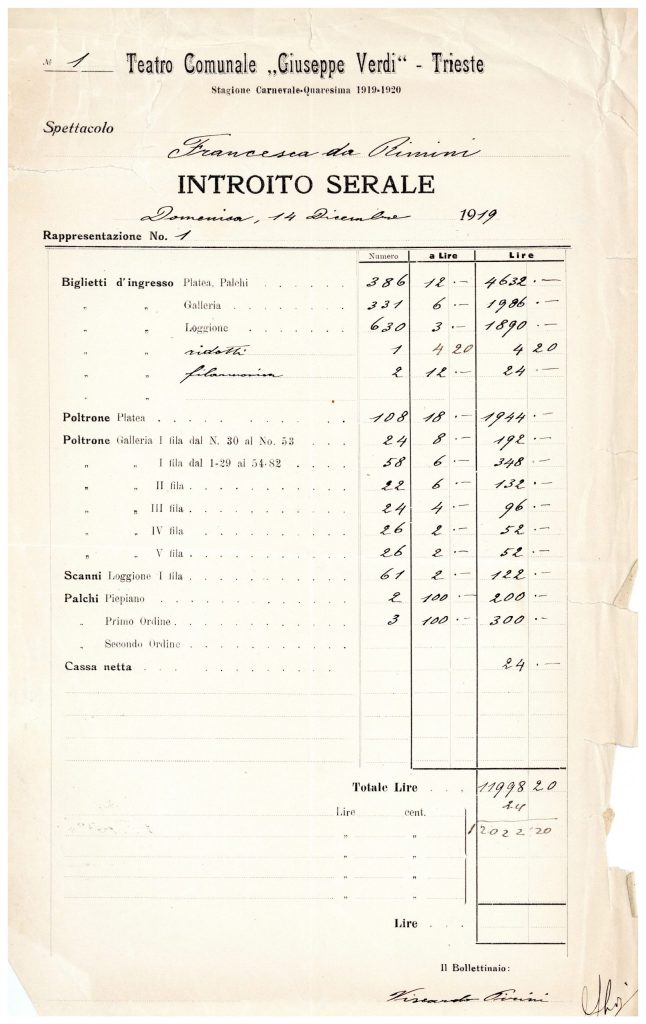 № 1 Teatro Comunale „Giuseppe Verdi“ - Trieste
Stagione Carnevale-Quaresima 1919-1920
Spettacolo
Francesca da Rimini
INTROITO SERALE
Domenica, 14 Dicembre 1919
Rappresentazione No. 1
Numero a Lire Lire
Biglietti d'ingresso Platea, Palchi . . . . . . 386 12 · — 4632 · —
„ „ Galleria . . . . . . . 331 6 · — 1986 · —
„ „ Loggione . . . . . . . 630 3 · — 1890 · —
„ „ ridotti 1 4 20 4 20
„ „ filarmonica 2 12 · — 24 · —
„ „
Poltrone Platea . . . . . . . . . . . 108 18 · — 1944 · —
Poltrone Galleria I fila dal N. 30 al No. 53 . . . 24 8 · — 192 · —
„ „ I fila dal 1-29 ai 54-82 . . . . 58 6 · — 348 · —
„ „ II fila . . . . . . . . . 22 6 · — 132 · —
„ „ III fila . . . . . . . . . 24 4 · — 96 · —
„ „ IV fila . . . . . . . . . 26 2 · — 52 · —
„ „ V fila . . . . . . . . . 26 2 · — 52 · —
Scanni Loggione I fila . . . . . . . . . 61 2 · — 122 · —
Palchi Piepiano . . . . . . . . . . 2 100 · — 200 · —
„ Primo Ordine . . . . . . . . . 3 100 · — 300 · —
„ Secondo Ordine . . . . . . . .
Cassa netta . . . . . . . . . . 24 · —
Totale Lire . . . 11998 20
24
Lire cent.
„ „ 12022·20
„ „
„ „
„ „
Lire . . .
Il Bollettinaio: